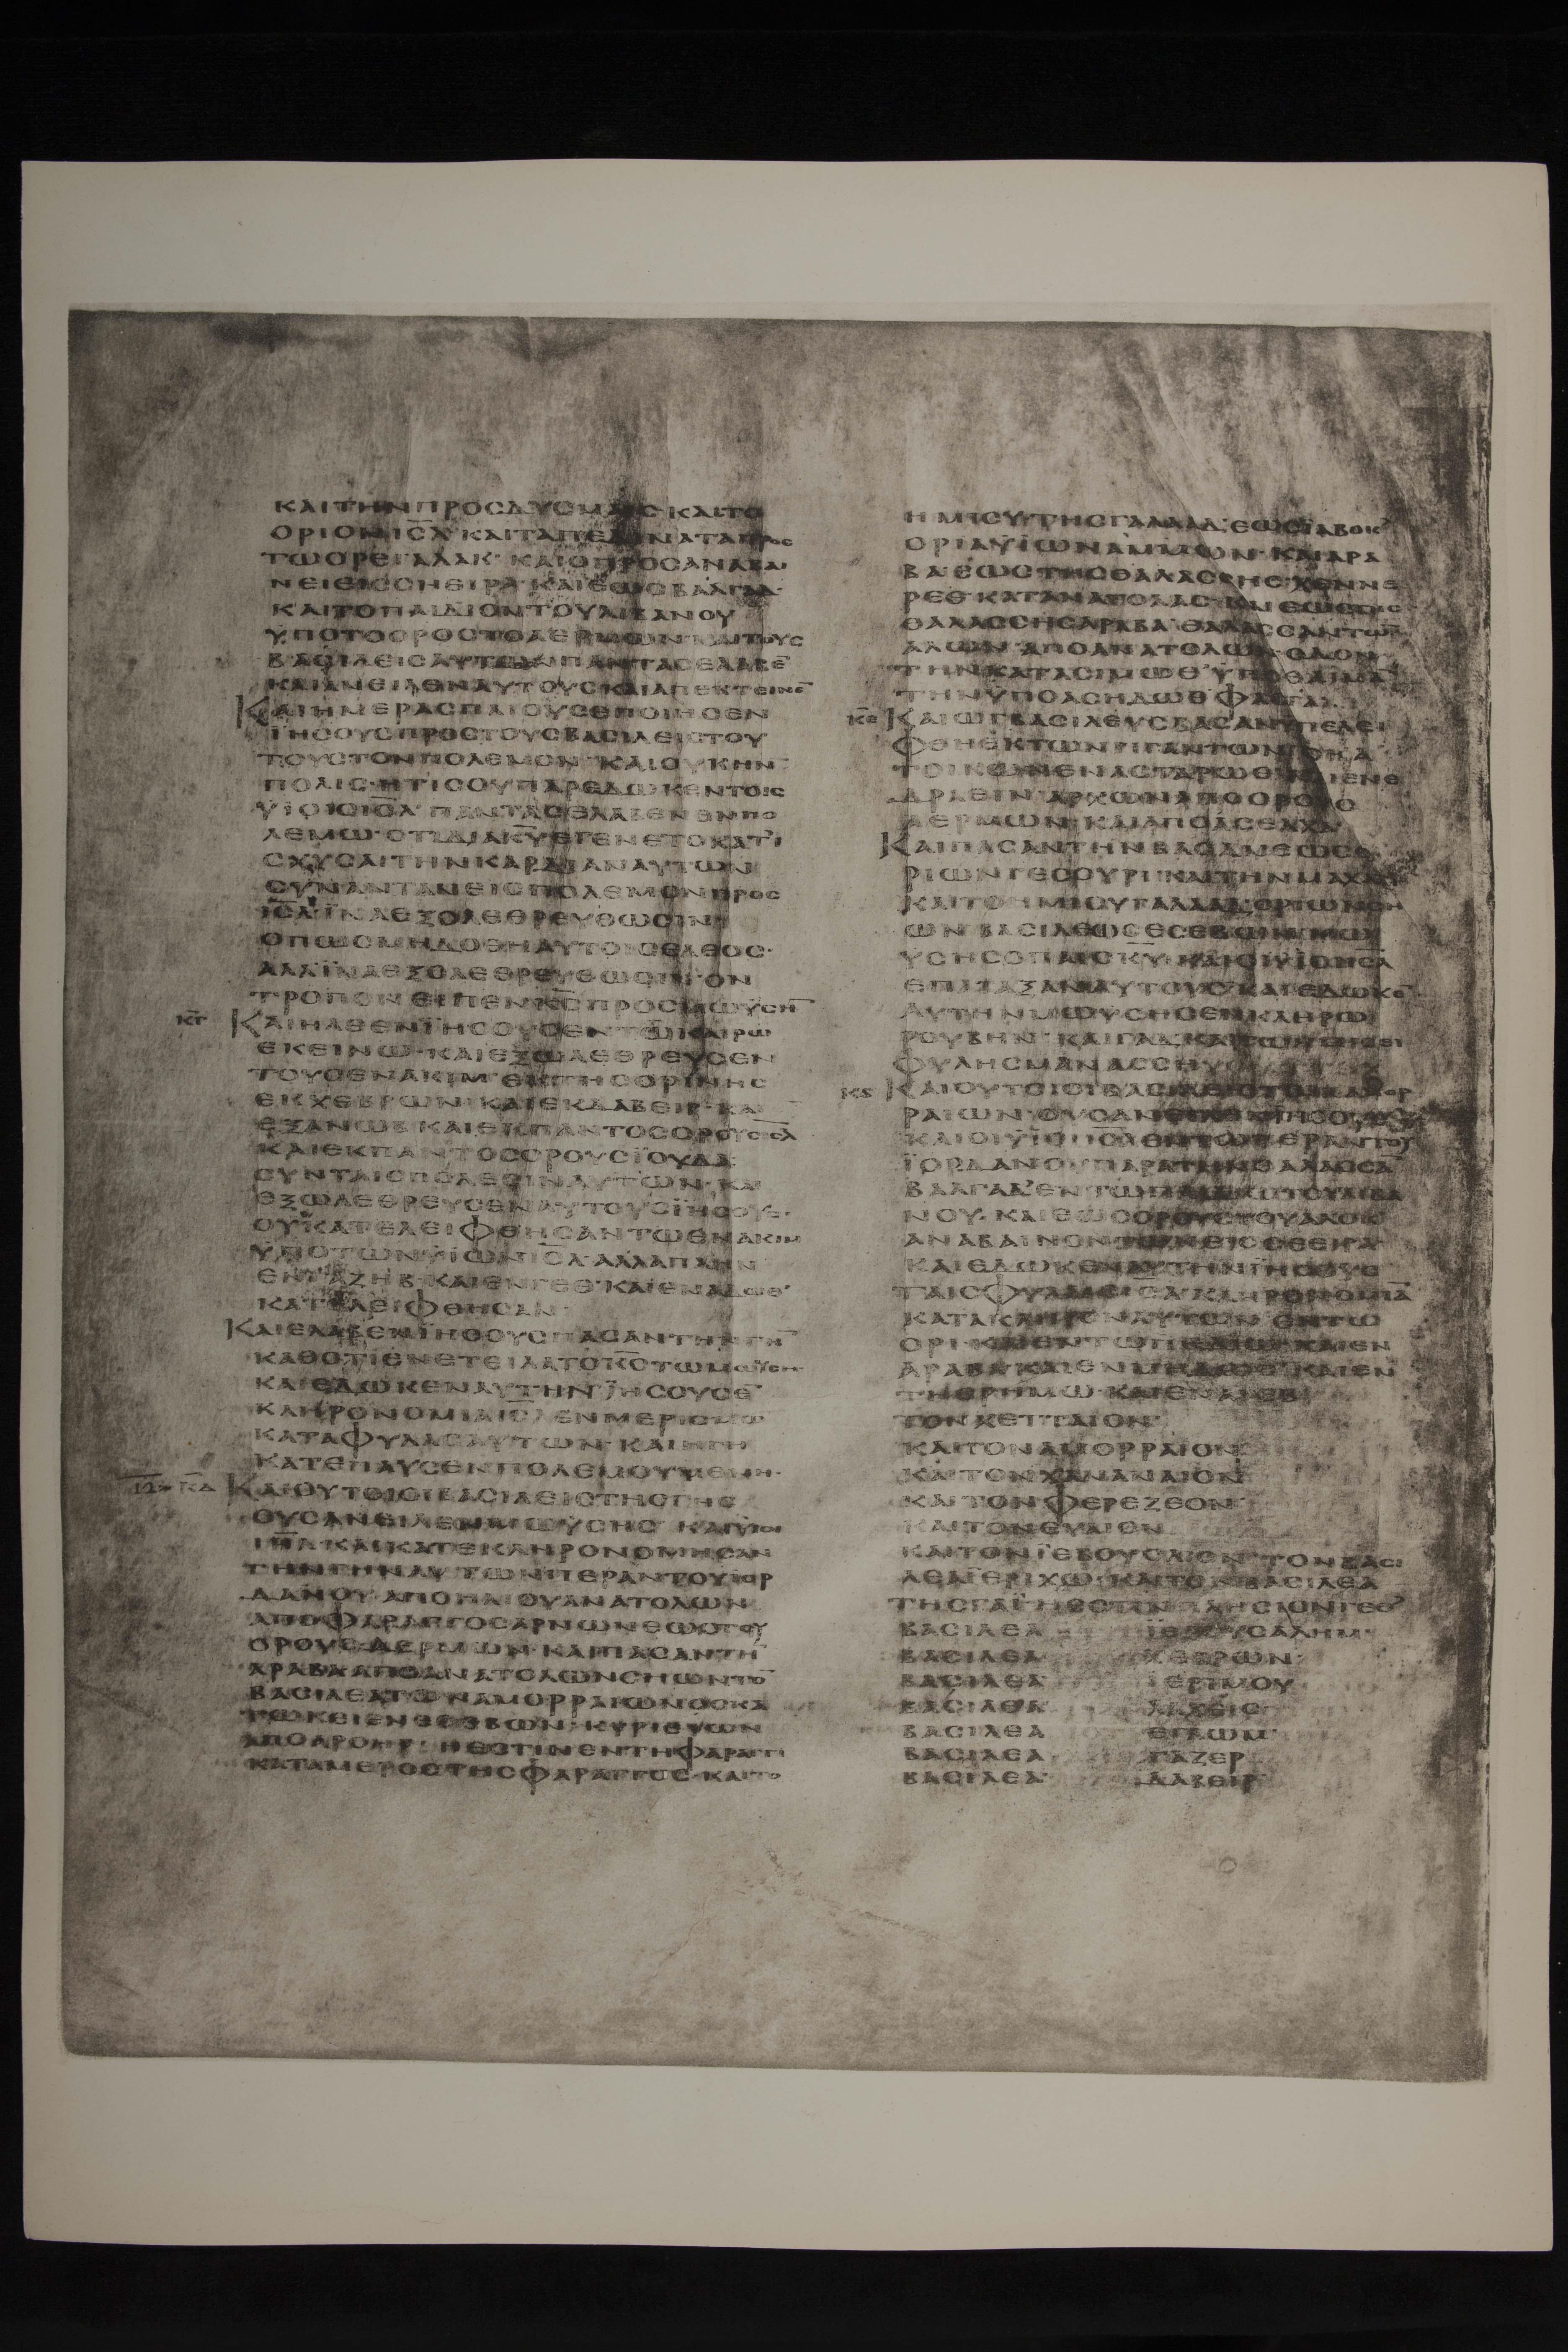 ΚΑΙΤΗΝΠΡΟΣΔΥΣΜΑΙΣΚΑΙΤΟ
ΟΡΙΟΝΙΣ̅Λ̅ΚΑΙΤΑΠΕΔΙΝΑΤΑΠΡΟΣ
ΤΩΟΡΕΙΑΛΑΚ·ΚΑΙΟΠΡΟΣΑΝΑΒΑΙ
ΝΕΙΕΙΣΣΗΕΙΡΑ·ΚΑΙΕΩΣΒΑΛΓΑΔ·
ΚΑΙΤΟΠΑΙΔΙΟΝΤΟΥΛΙΒΑΝΟΥ
ΫΠΟΤΟΟΡΟΣΤΟΑΕΡΜΩΝ
ΒΑΣΙΛΕΙΣΑΥΤΩΝΠΑΝΤΑΣΕΛΑΒΕ̅
ΚΑΙΑΝΕΙΛΕΝΑΥΤΟΥΣΚΑΙΑΠΕΚΤΕΙΝΕ̅
ΚΑΙΗΜΕΡΑΣΠΛΙΟΥΣΕΠΟΙΗΣΕΝ
ΪΗΣΟΥΣΠΡΟΣΤΟΥΣΒΑΣΙΛΕΙΣΤΟΥ
ΤΟΥΣΤΟΝΠΟΛΕΜΟΝ·ΚΑΙΟΥΚΗΝ
ΠΟΛΙΣ·ΗΤΙΣΟΥΠΑΡΕΔΩΚΕΝΤΟΙΣ
ΫΙΟΙΣΙΣ̅Λ̅·ΠΑΝΤΑΣΕΛΑΒΕΝΕΝΠΟ
ΛΕΜΩ·ΟΤΙΔΙΑΚ̅Υ̅ΕΓΕΝΕΤΟΚΑΤΙ
ΣΧΥΣΑΙΤΗΝΚΑΡΔΙΑΝΑΥΤΩΝ
ΣΥΝΑΝΤΑΝΕΙΣΠΟΛΕΜΟΝΠΡΟΣ
ΙΣ̅Λ̅ΪΝΑΕΞΟΛΕΘΡΕΥΘΩΣΙΝ
ΟΠΩΣΜΗΔΟΘΗΑΥΤΟΙΣΕΛΕΟΣ·
ΑΛΛΪΝΑΕΞΟΛΕΘΡΕΥΘΩΣΙΝΟΝ
ΤΡΟΠΟΝΕΙΠΕΝΚ̅Σ̅ΠΡΟΣΜΩΥΣΗ̅
Κ̅Γ̅ ΚΑΙΗΛΘΕΝΪΗΣΟΥΣΕΝΤΩΚΑΙΡΩ
ΕΚΕΙΝΩ·ΚΑΙΕΞΩΛΕΘΡΕΥΣΕΝ
ΤΟΥΣΕΝΑΚΙΜΕΚΤΗΣΟΡΙΝΗΣ
ΕΚΧΕΒΡΩΝ·ΚΑΙΕΚΔΑΒΕΙΡ·ΚΑΙ
ΕΞΑΝΩΒΚΑΙΕΚΠΑΝΤΟΣΟΡΟΥΣΙΣ̅Λ̅
ΚΑΙΕΚΠΑΝΤΟΣΟΡΟΥΣΪΟΥΔΑ
ΣΥΝΤΑΙΣΠΟΛΕΣΙΝΑΥΤΩΝ·ΚΑΙ
ΕΞΩΛΕΘΡΕΥΣΕΝΑΥΤΟΥΣΪΗΣΟΥΣ·
ΟΥΚΑΤΕΛΕΙΦΘΗΣΑΝΤΩΕΝΑΚΙΜ
ΫΠΟΤΩΝΫΙΩΝΙΣ̅Λ̅·ΑΛΛΑΠΛΗΝ
ΕΝΓΑΖΗΒ·ΚΑΙΕΝΓΕΘ·ΚΑΙΕΝΑΔΩΘ
ΚΑΤΕΛΕΙΦΘΗΣΑΝ·
ΚΑΙΕΛΑΒΕΝΪΗΣΟΥΣΠΑΣΑΝΤΗΝΓΗ̅
ΚΑΘΟΤΙΕΝΕΤΕΙΛΑΤΟΚ̅Σ̅ΤΩΜΩΥΣΗ
ΚΑΙΕΔΩΚΕΝΑΥΤΗΝΪΗΣΟΥΣΕ̅
ΚΛΗΡΟΝΟΜΙΑΙΣ̅Λ̅ΕΝΜΕΡΙΣΜΩ
ΚΑΤΑΦΥΛΑΣΑΥΤΩΝ·ΚΑΙΗΓΗ
ΚΑΤΕΠΑΥΣΕΝΠΟΛΕΜΟΥΜΕΝΗ·
Κ̅Δ̅ ΚΑΙΟΥΤΟΙΟΙΒΑΣΙΛΕΙΣΤΗΣΓΗΣ
ΟΥΣΑΝΕΙΛΕΝΜΩΥΣΗΣ ΚΑΙΫΙΟΙ
ΙΗ̅Λ̅·ΚΑΙΚΑΤΕΚΛΗΡΟΝΟΜΗΣΑΝ
ΤΗΝΓΗΝΑΥΤΩΝΠΕΡΑΝΤΟΥΙΟΡ
ΔΑΝΟΥΑΠΟΗΛΙΟΥΑΝΑΤΟΛΩΝ
ΑΠΟΦΑΡΑΓΓΟΣΑΡΝΩΝΕΩΣΤΟΥ
ΟΡΟΥΣΑΕΡΜΩΝ·ΚΑΙΠΑΣΑΝΤΗ̅
ΑΡΑΒΑΑΠΟΑΝΑΤΟΛΩΝΣΗΩΝΤΟ̅
ΒΑΣΙΛΕΑΤΩΝΑΜΟΡΡΑΙΩΝΟΣΚΑ
ΤΩΚΕΙΕΝΕΣΕΒΩΝ·ΚΥΡΙΕΥΩΝ
ΑΠΟΑΡΟΗΡ·ΗΕΣΤΙΝΕΝΤΗΦΑΡΑΓΓΙ
ΚΑΤΑΜΕΡΟΣΤΗΣΦΑΡΑΓΓΟΣ·ΚΑΙΤΟ
ΗΜΙΣΥΤΗΣΓΑΛΑΑΔ·ΕΩΣΪΑΒΟΚ
ΟΡΙΑΫΙΩΝΑΜΜΩΝ·ΚΑΙΑΡΑ
ΒΑ·ΕΩΣΤΗΣΘΑΛΑΣΣΗΣΧΕΝΝΕ
ΡΕΘ·ΚΑΤΑΝΑΤΟΛΑΣ·ΚΑΙΕΩΣΤΗΣ
ΘΑΛΑΣΣΗΣΑΡΑΒΑ·ΘΑΛΑΣΣΑΝΤΩ̅
ΑΛΩΝΑΠΟΑΝΑΤΟΛΩΝΟΔΟΝ
ΤΗΝΚΑΤΑΣΙΜΩΘ·ΫΠΟΘΑΙΜΑ
ΤΗΝΫΠΟΑΣΗΔΩΘΦΑΣΓΑ·
Κ̅Ε̅ ΚΑΙΩΓΒΑΣΙΛΕΥΣΒΑΣΑΝΫΠΕΛΕΙ
ΦΘΗΕΚΤΩΝΓΙΓΑΝΤΩΝ
ΑΕΡΜΩΝ·ΚΑΙΑΠΟΑΣΕΛΧΑ
ΚΑΙΠΑΣΑΝΤΗΝΒΑΣΑΝΕΩΣΟ
ΡΙΩΝΓΕΣΟΥΡΙ·ΚΑΙΤΗΝΜΑΧΑΤΙ
ΚΑΙΤΟΗΜΙΣΥΓΑΛΑΑΔΟΡΙΩΝΣΗ
ΩΝΒΑΣΙΛΕΩΣΕΣΕΒΩΝ
ΥΣΗΣΟΠΑΙΣΚ̅Υ̅·ΚΑΙΟΙΫΙΟΙΙΣ̅Λ̅
ΕΠΑΤΑΞΑΝΑΥΤΟΥΣ·ΚΑΙΕΔΩΚΕ̅
ΑΥΤΗΝΜΩΥΣΗΣΕΝΚΛΗΡΩ
ΡΟΥΒΗΝ·ΚΑΙΓΑΔ·ΚΑΙΤΩΗΜΙΣΕΙ
ΦΥΛΗΣΜΑΝΑΣΣΗ
Κ̅Ϛ̅ ΚΑΙΟΥΤΟΙΟΙΒΑΣΙΛΕΙΣΤΩΝΑΜΟΡ
ΡΑΙΩΝΟΥΣΑΝΕΙΛΕΝΪΗΣΟΥΣ
ΚΑΙΟΙΫΙΟΙΙΣ̅Λ̅ΕΝΤΩΠΕΡΑΝΤΟΥ
ΪΟΡΔΑΝΟΥΠΑΡΑΤΗΝΘΑΛΑΣΣΑ̅
ΒΑΛΓΑΔ·ΕΝΤΩΠΕΔΙΩΤΟΥΛΙΒΑ
ΝΟΥ·ΚΑΙΕΩΣΟΡΟΥΣΤΟΥΑΛΟΚ
ΑΝΑΒΑΙΝΟΝΤΩΝΕΙΣΣΗΕΙΡΑ
ΚΑΙΕΔΩΚΕΝΑΥΤΗΝΪΗΣΟΥΣ
ΤΑΙΣΦΥΛΑΙΣΙΣ̅Λ̅·ΚΛΗΡΟΝΟΜΙΑ̅
ΚΑΤΑΚΛΗΡΟΝΑΥΤΩΝ·ΕΝΤΩ
ΟΡΙ·ΚΑΙΕΝΤΩΠΕΔΙΩ·ΚΑΙΕΝ
ΑΡΑΒΑ·ΚΑΙΕΝΜΗΔΩΘ·ΚΑΙΕΝ
ΤΗΕΡΗΜΩ·ΚΑΙΕΝΑΓΕΒ
ΤΟΝΧΕΤΤΑΙΟΝ·
ΚΑΙΤΟΝΑΜΟΡΡΑΙΟΝ·
ΚΑΙΤΟΝΧΑΝΑΝΑΙΟΝ
ΚΑΙΤΟΝΦΕΡΕΖΕΟΝ·
ΚΑΙΤΟΝΕΥΑΙΟΝ
ΚΑΙΤΟΝΪΕΒΟΥΣΑΙΟΝ·ΤΟΝΒΑΣΙ
ΛΕΑΪΕΡΙΧΩ·ΚΑΙΤΟΝΒΑΣΙΛΕΑ
ΤΗΣΓΑΪ·ΗΕΣΤΙΝΠΛΗΣΙΟΝΓΕΘ
ΒΑΣΙΛΕΑ ΙΕΡΟΥΣΑΛΗΜ·
ΒΑΣΙΛΕΑ ΧΕΒΡΩΝ·
ΒΑΣΙΛΕΑ ΙΕΡΙΜΟΥ
ΒΑΣΙΛΕΑ ΛΑΧΕΙΣ
ΒΑΣΙΛΕΑ ΕΓΛΩΜ·
ΒΑΣΙΛΕΑ ΓΑΖΕΡ
ΒΑΣΙΛΕΑ ΔΑΒΕΙΡ